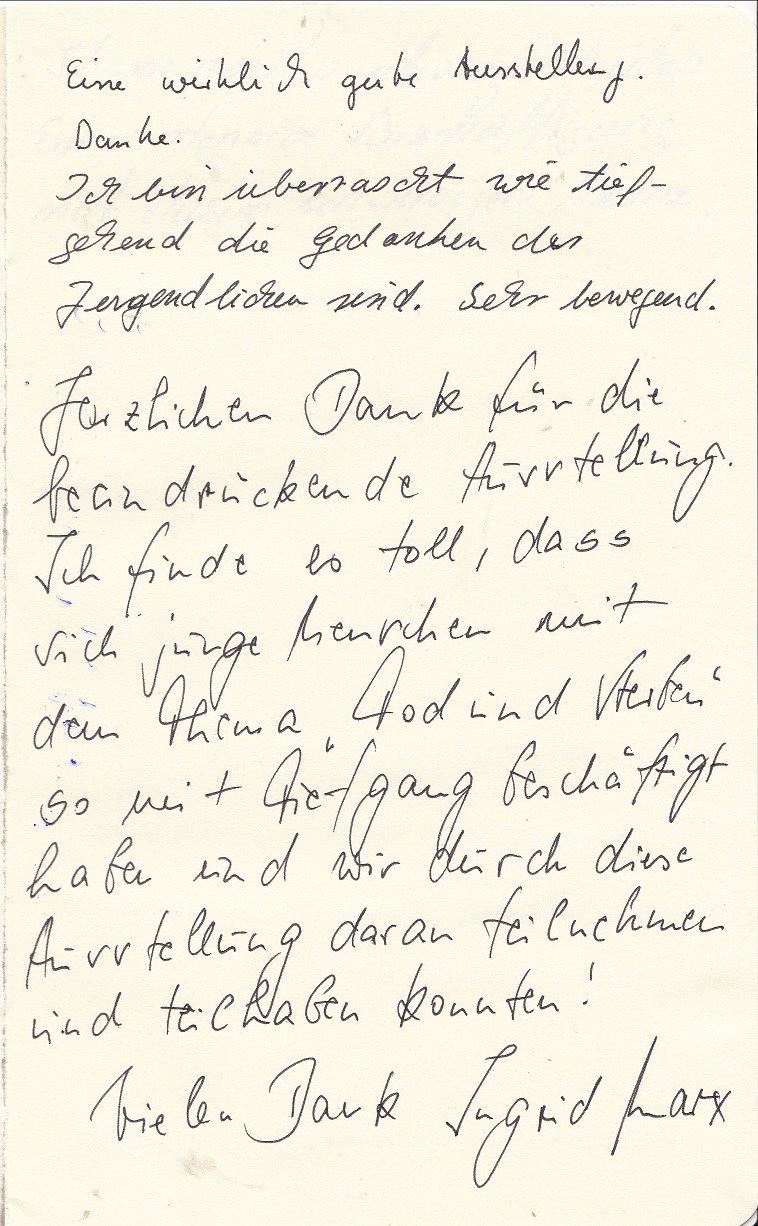 Eine wirklich gute Ausstellung.
Danke.
Ich bin überrascht wie tief-
gehend die Gedanken der
Jugendlichen sind. Sehr bewegend.
Herzlichen Dank für die
beeindruckende Ausstellung.
Ich finde es toll, dass
sich junge Menschen mit
dem Thema „Tod und Sterben“
so mit Tiefgang beschäftigt
haben und wir durch diese
Ausstellung daran teilnehmen
und teilhaben konnten!
Vielen Dank Ingrid Marx